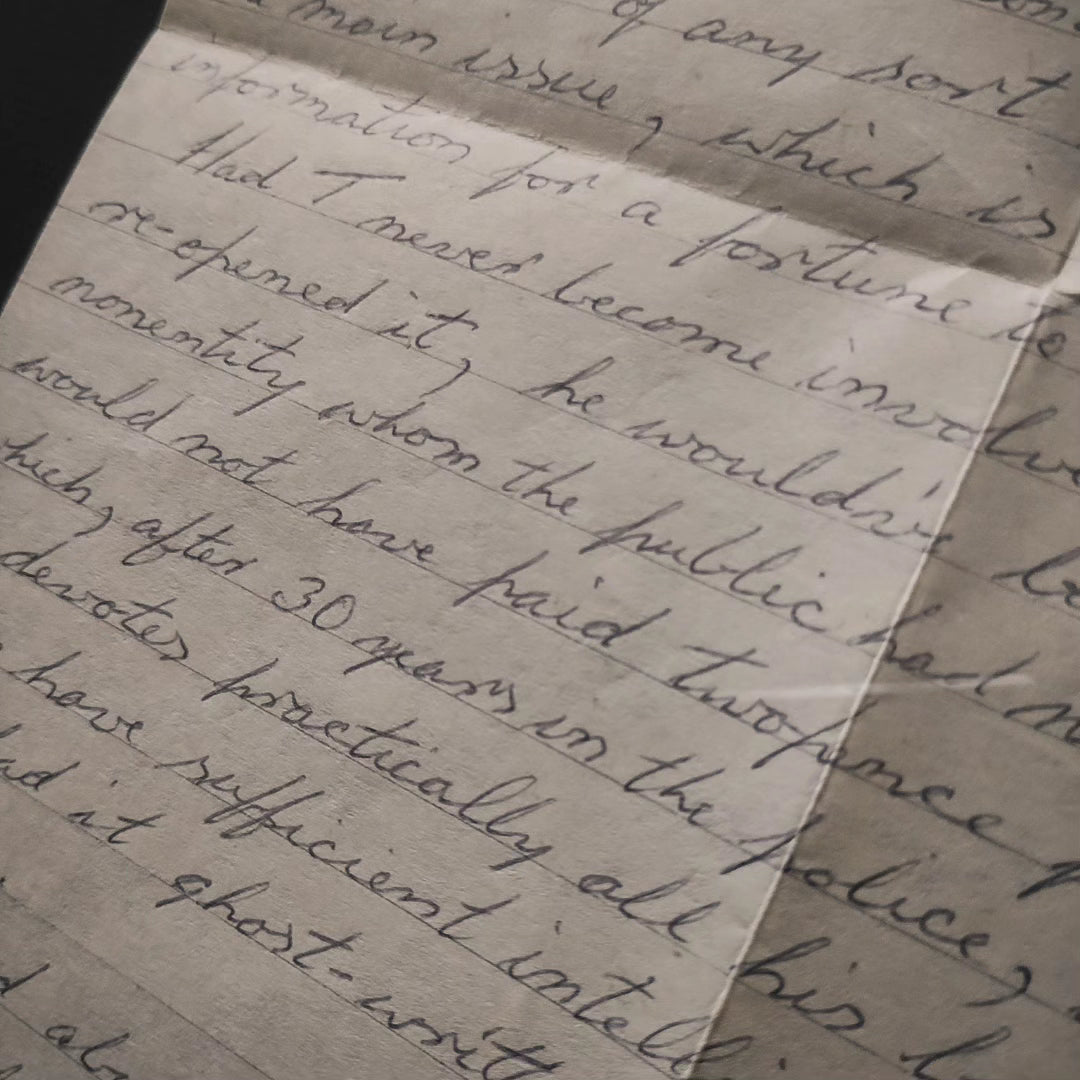 of any sort
main issue, which is
information for a fortune to
Had T never become involve
re-opened it, he would
nonentity whom the public had
would not have paid twopence
hich, after 30 years in the police,
devotes practically all his
have sufficient intelli
ad it ghost-writt